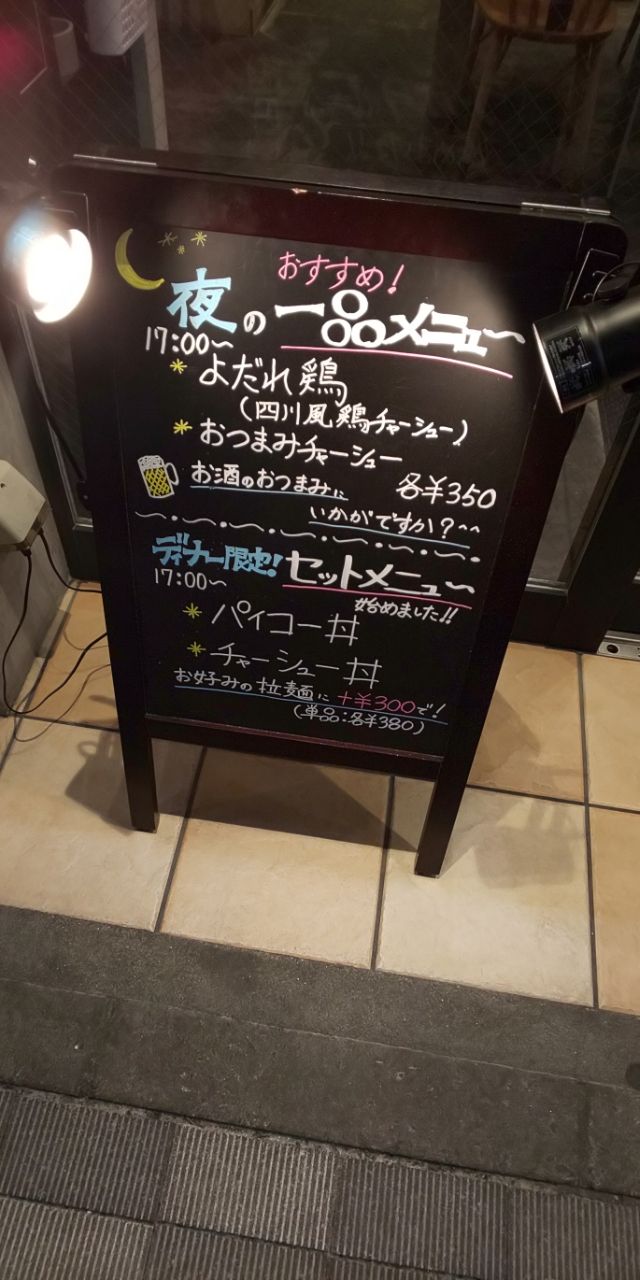 おすすめ!
夜の一品メニュー
17:00〜
* よだれ鶏
(四川風鶏チャーシュー)
* おつまみチャーシュー
お酒のおつまみに 各¥350
いかがですか?^^
ディナー限定! セットメニュー
17:00〜 始めました!!
* パイコー丼
* チャーシュー丼
お好みの拉麺に +¥300で!
(単品:各¥380)